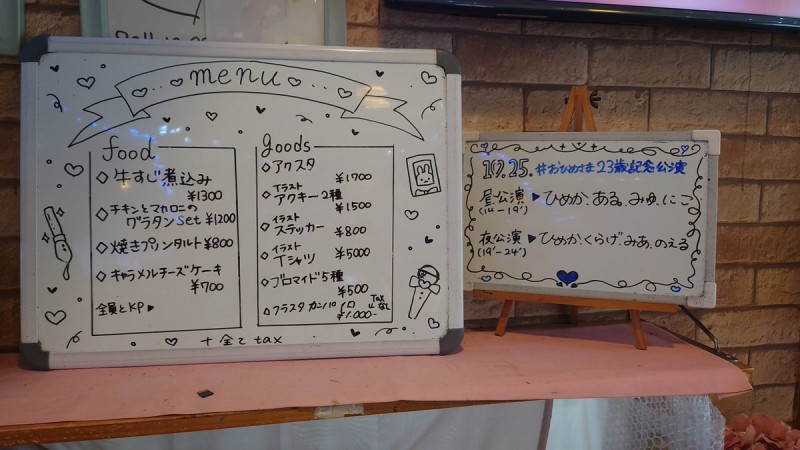 menu
food
◇牛すじ煮込み
¥1300
◇チキンとマカロニの
グラタンset ¥1200
◇焼きプリンタルト ¥800
◇キャラメルチーズケーキ
¥700
全員とKP▶
goods
◇アクスタ
¥1700
◇イラスト
アクキー2種
¥1500
◇イラスト
ステッカー ¥800
◇イラスト
Tシャツ ¥5000
◇ブロマイド5種
¥500
◇フラスタ カンパ 1口 Tax
¥1.000- なし
+全て tax
10.25. #おひめさま23歳記念公演
昼公演▶ひめか、ある、みゆ、にこ
(14-19')
夜公演▶ひめか、くらげ、みあ、のえる
(19'-24')